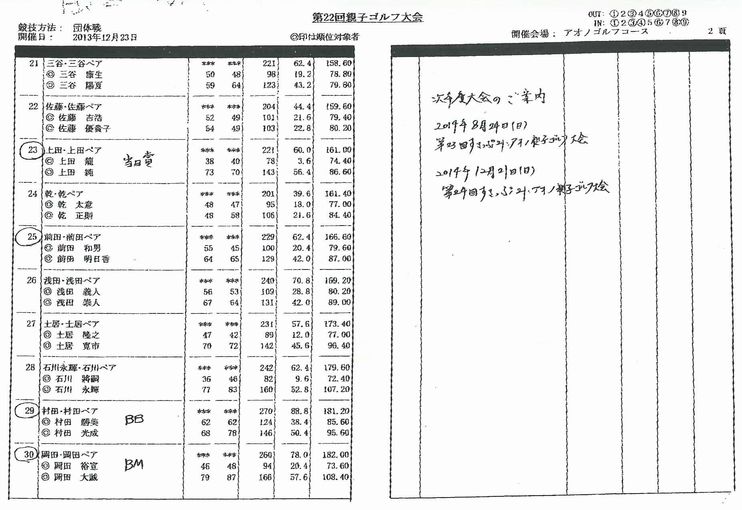 第22回親子ゴルフ大会
競技方法： 団体戦
開催日： 2013年12月23日
◎印は順位対象者
OUT: ①2③4⑤⑥⑦⑧9
IN: ①②③④5⑥⑦⑧⑨
開催会場： アオノゴルフコース
2 頁
21 三谷・三谷ペア *** *** 221 62.4 158.60
◎ 三谷 康生 50 48 98 19.2 78.80
◎ 三谷 陽夏 59 64 123 43.2 79.80
22 佐藤・佐藤ペア *** *** 204 44.4 159.60
◎ 佐藤 吉浩 52 49 101 21.6 79.40
◎ 佐藤 優貴子 54 49 103 22.8 80.20
23 上田・上田ペア *** *** 221 60.0 161.00
◎ 上田 龍 38 40 78 3.6 74.40
◎ 上田 純 73 70 143 56.4 86.60
当日賞
24 乾・乾ペア *** *** 201 39.6 161.40
◎ 乾 太意 48 47 95 18.0 77.00
◎ 乾 正剛 48 58 106 21.6 84.40
25 前田・前田ペア *** *** 229 62.4 166.60
◎ 前田 和男 55 45 100 20.4 79.60
◎ 前田 明日香 64 65 129 42.0 87.00
26 浅田・浅田ペア *** *** 240 70.8 169.20
◎ 浅田 義人 56 53 109 28.8 80.20
◎ 浅田 崇人 67 64 131 42.0 89.00
27 土居・土居ペア *** *** 231 57.6 173.40
◎ 土居 隆之 47 42 89 12.0 77.00
◎ 土居 寛市 70 72 142 45.6 96.40
28 石川永輝・石川ペア *** *** 242 62.4 179.60
◎ 石川 將嗣 36 46 82 9.6 72.40
◎ 石川 永輝 77 83 160 52.8 107.20
29 村田・村田ペア *** *** 270 88.8 181.20
◎ 村田 勝美 62 62 124 38.4 85.60
◎ 村田 光成 68 78 146 50.4 95.60
BB
30 岡田・岡田ペア *** *** 260 78.0 182.00
◎ 岡田 裕宣 46 48 94 20.4 73.60
◎ 岡田 大誠 79 87 166 57.6 108.40
BM
次年度大会のご案内
2014年8月24日(日)
第23回すぽっぷ21・アオノ親子ゴルフ大会
2014年12月21日(日)
第24回すぽっぷ21・アオノ親子ゴルフ大会